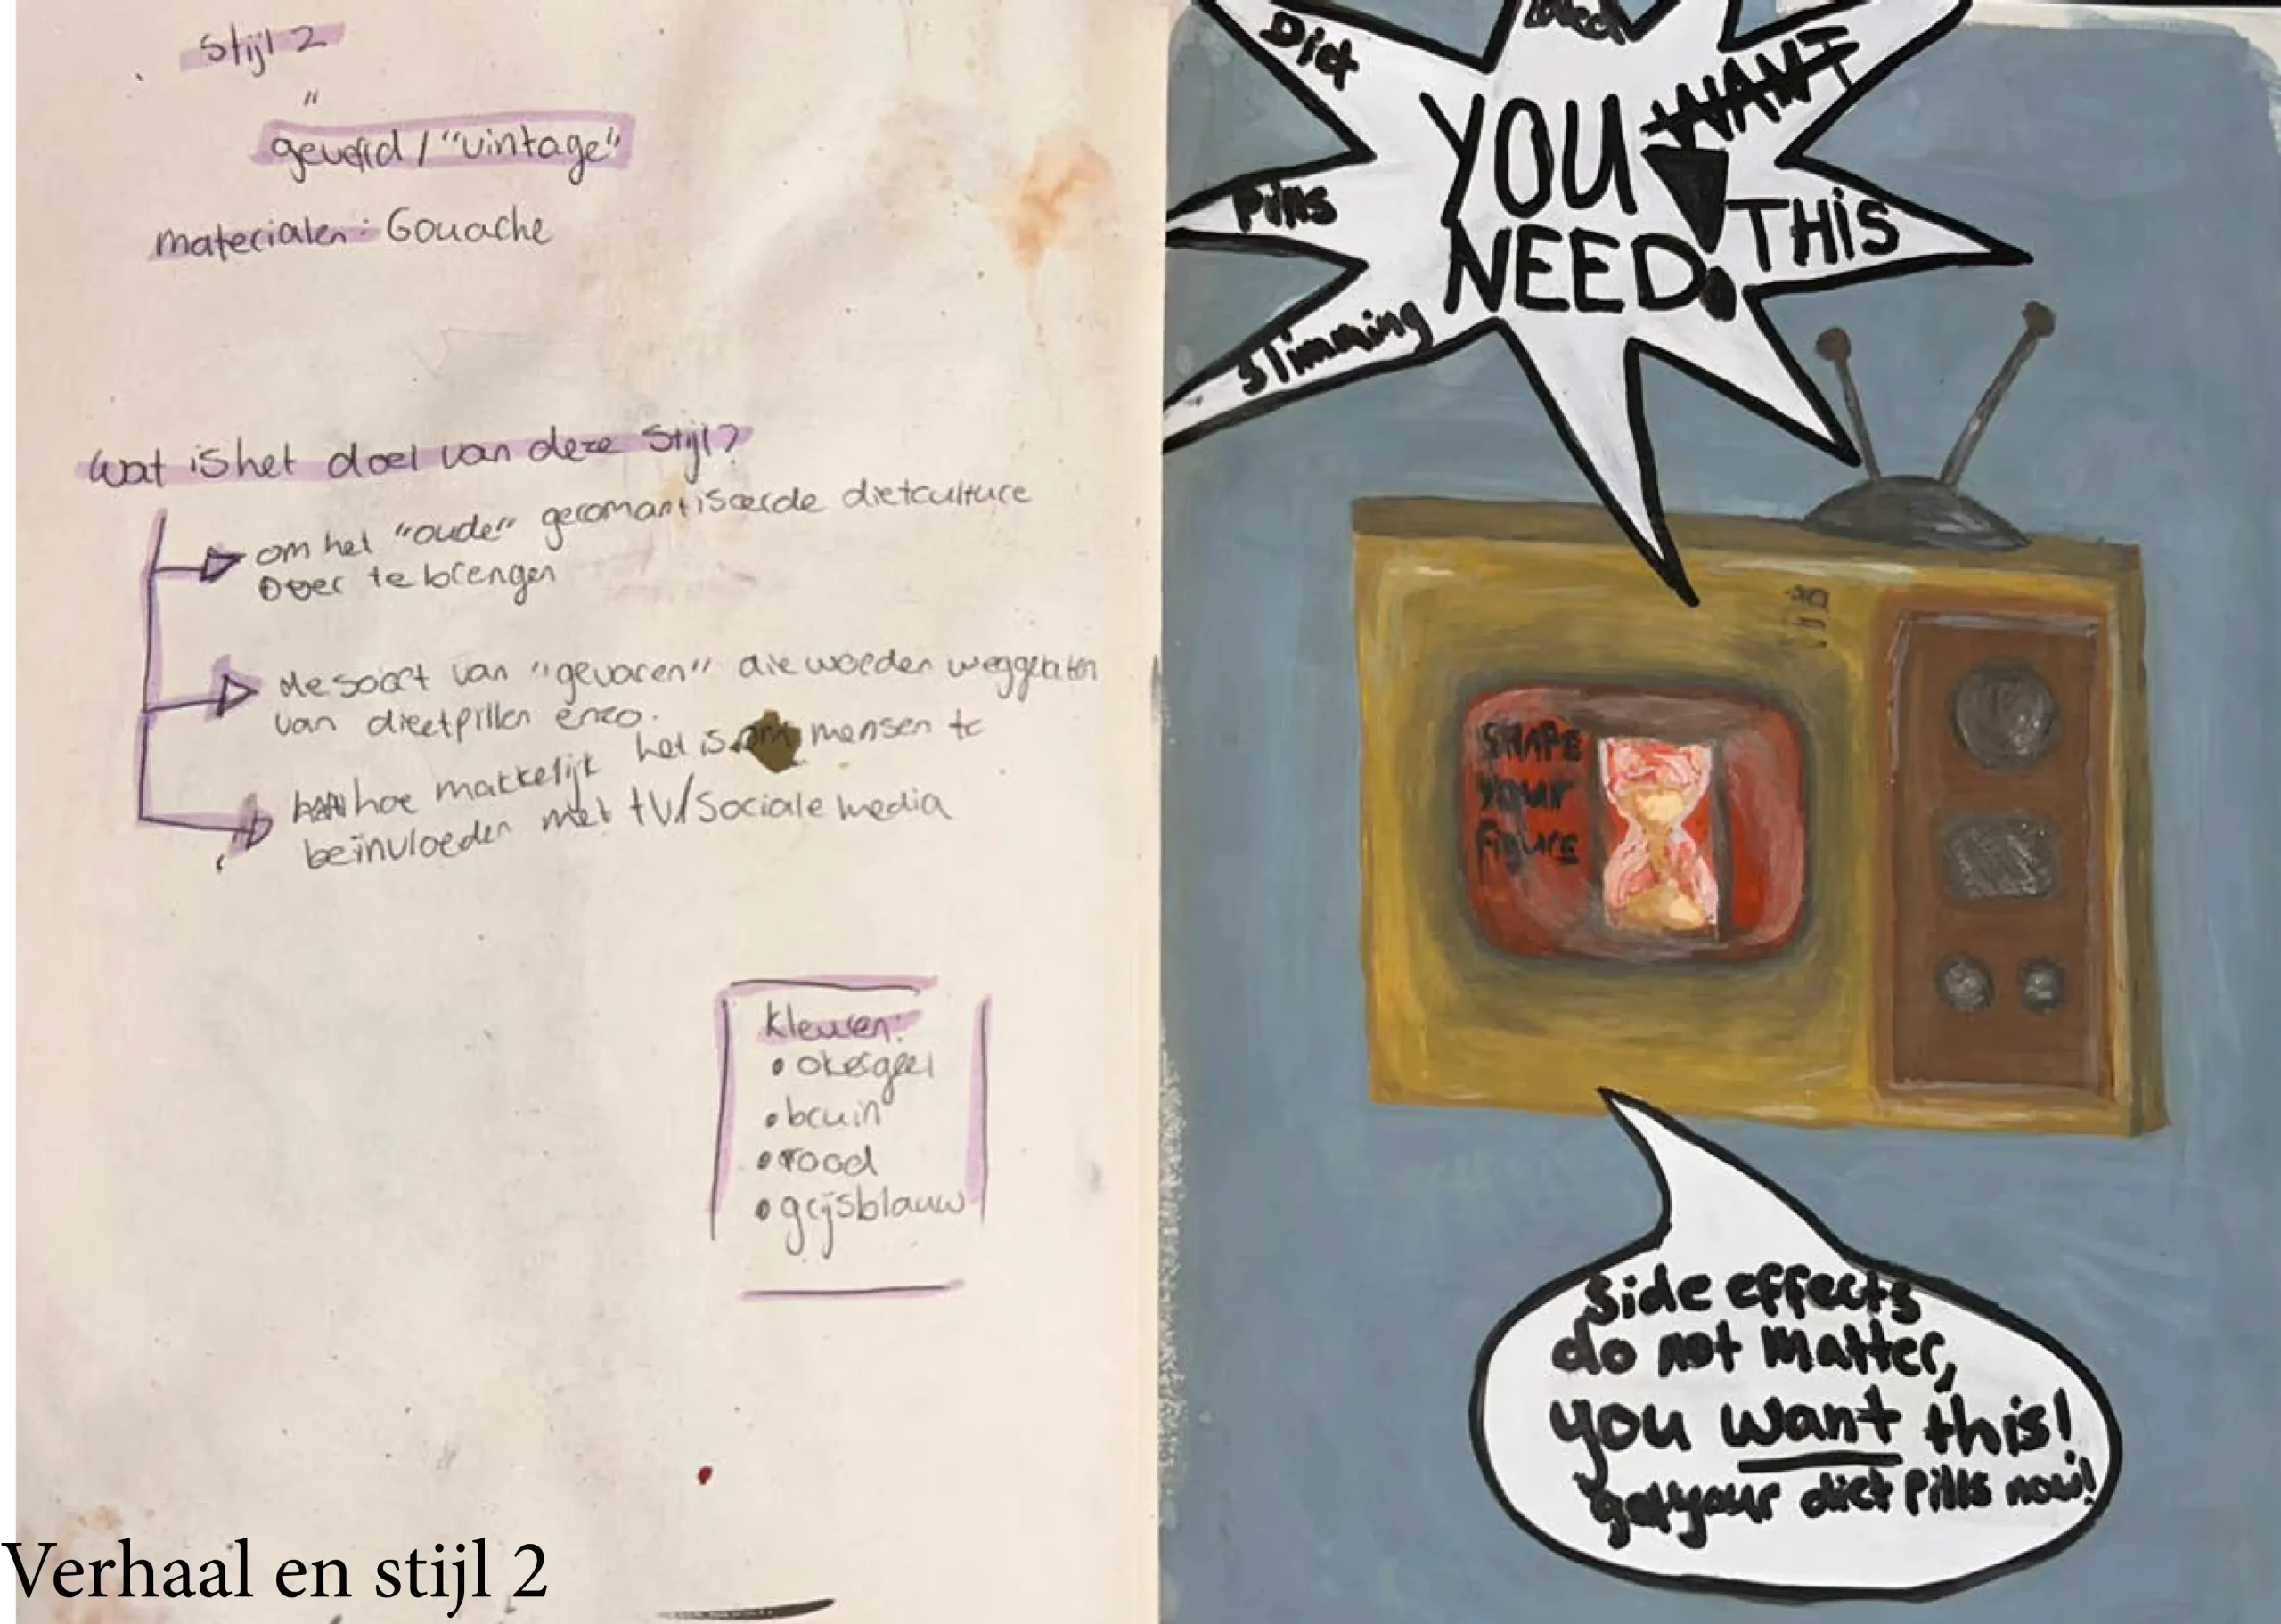 Stijl 2
"
geverfd / "vintage"
materialen: Gouache
Wat is het doel van deze Stijl?
om het "oude" geromantiseerde dietculture
over te brengen
de soort van "gevaren" die worden weggelaten
van dieetpillen enzo.
hoe makkelijk het is om mensen te
beïnvloeden met tV/Sociale media
kleuren:
• okergeel
• bruin
• rood
• grijsblauw
Verhaal en stijl 2
Diet
Pills
Slimming
YOU WANT
NEED THIS
SHAPE
your
figure
Side effects
do not matter,
you want this!
get your diet pills now!